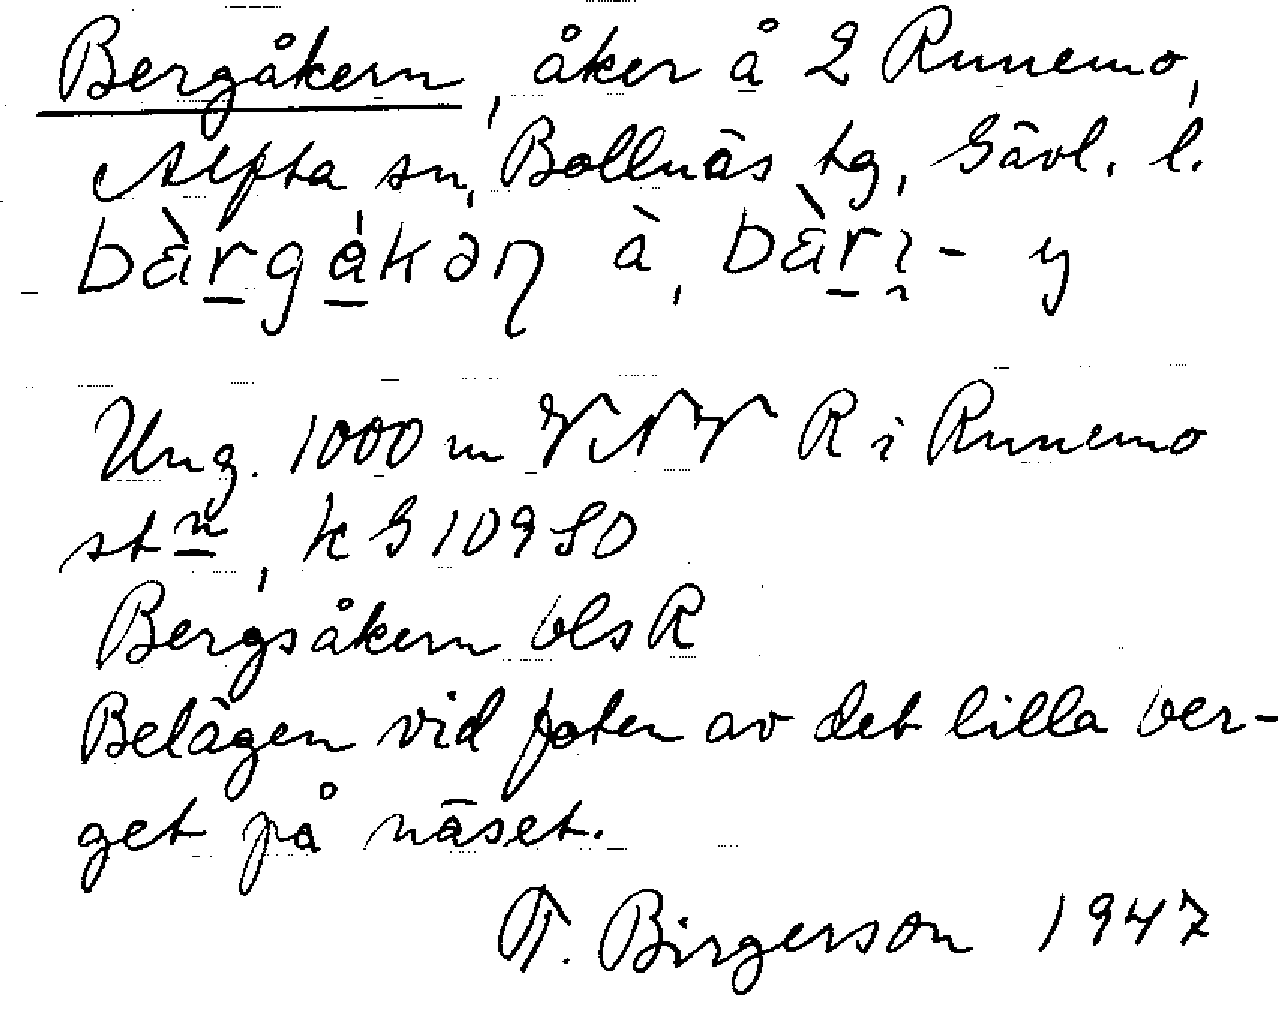 Bergåkern, åker å 2 Runemo,
Alfta sn, Bollnäs tg, Gävl. l.
bàrgåkəη à, bàrı- y
Ung. 1000 m VNV R i Runemo
stn, kG 10950
Bergsåkern bls R
Belägen vid foten av det lilla ber-
get på näset.
T. Birgerson 1947